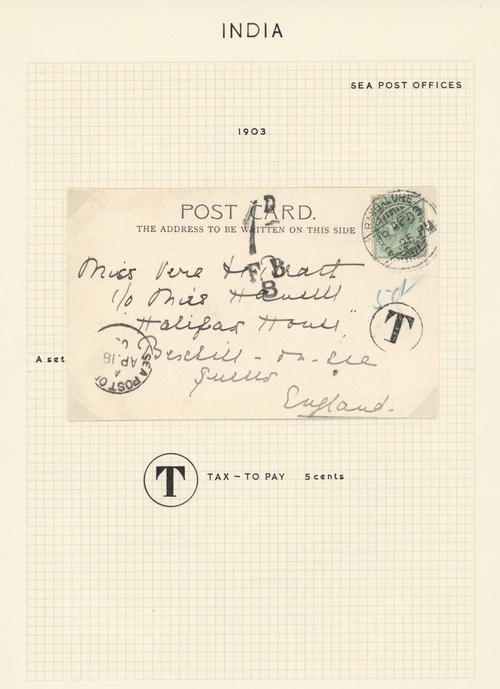 INDIA
SEA POST OFFICES
1903
POST CARD.
THE ADDRESS TO BE WRITTEN ON THIS SIDE
1D
BANGALORE
Miss Vere
F.B
B
c/o Miss
"Halifax House"
T
A set
SEA POST OF
AP.18
Bexhill-on-sea
Sussex
England.
T TAX – TO PAY 5 cents